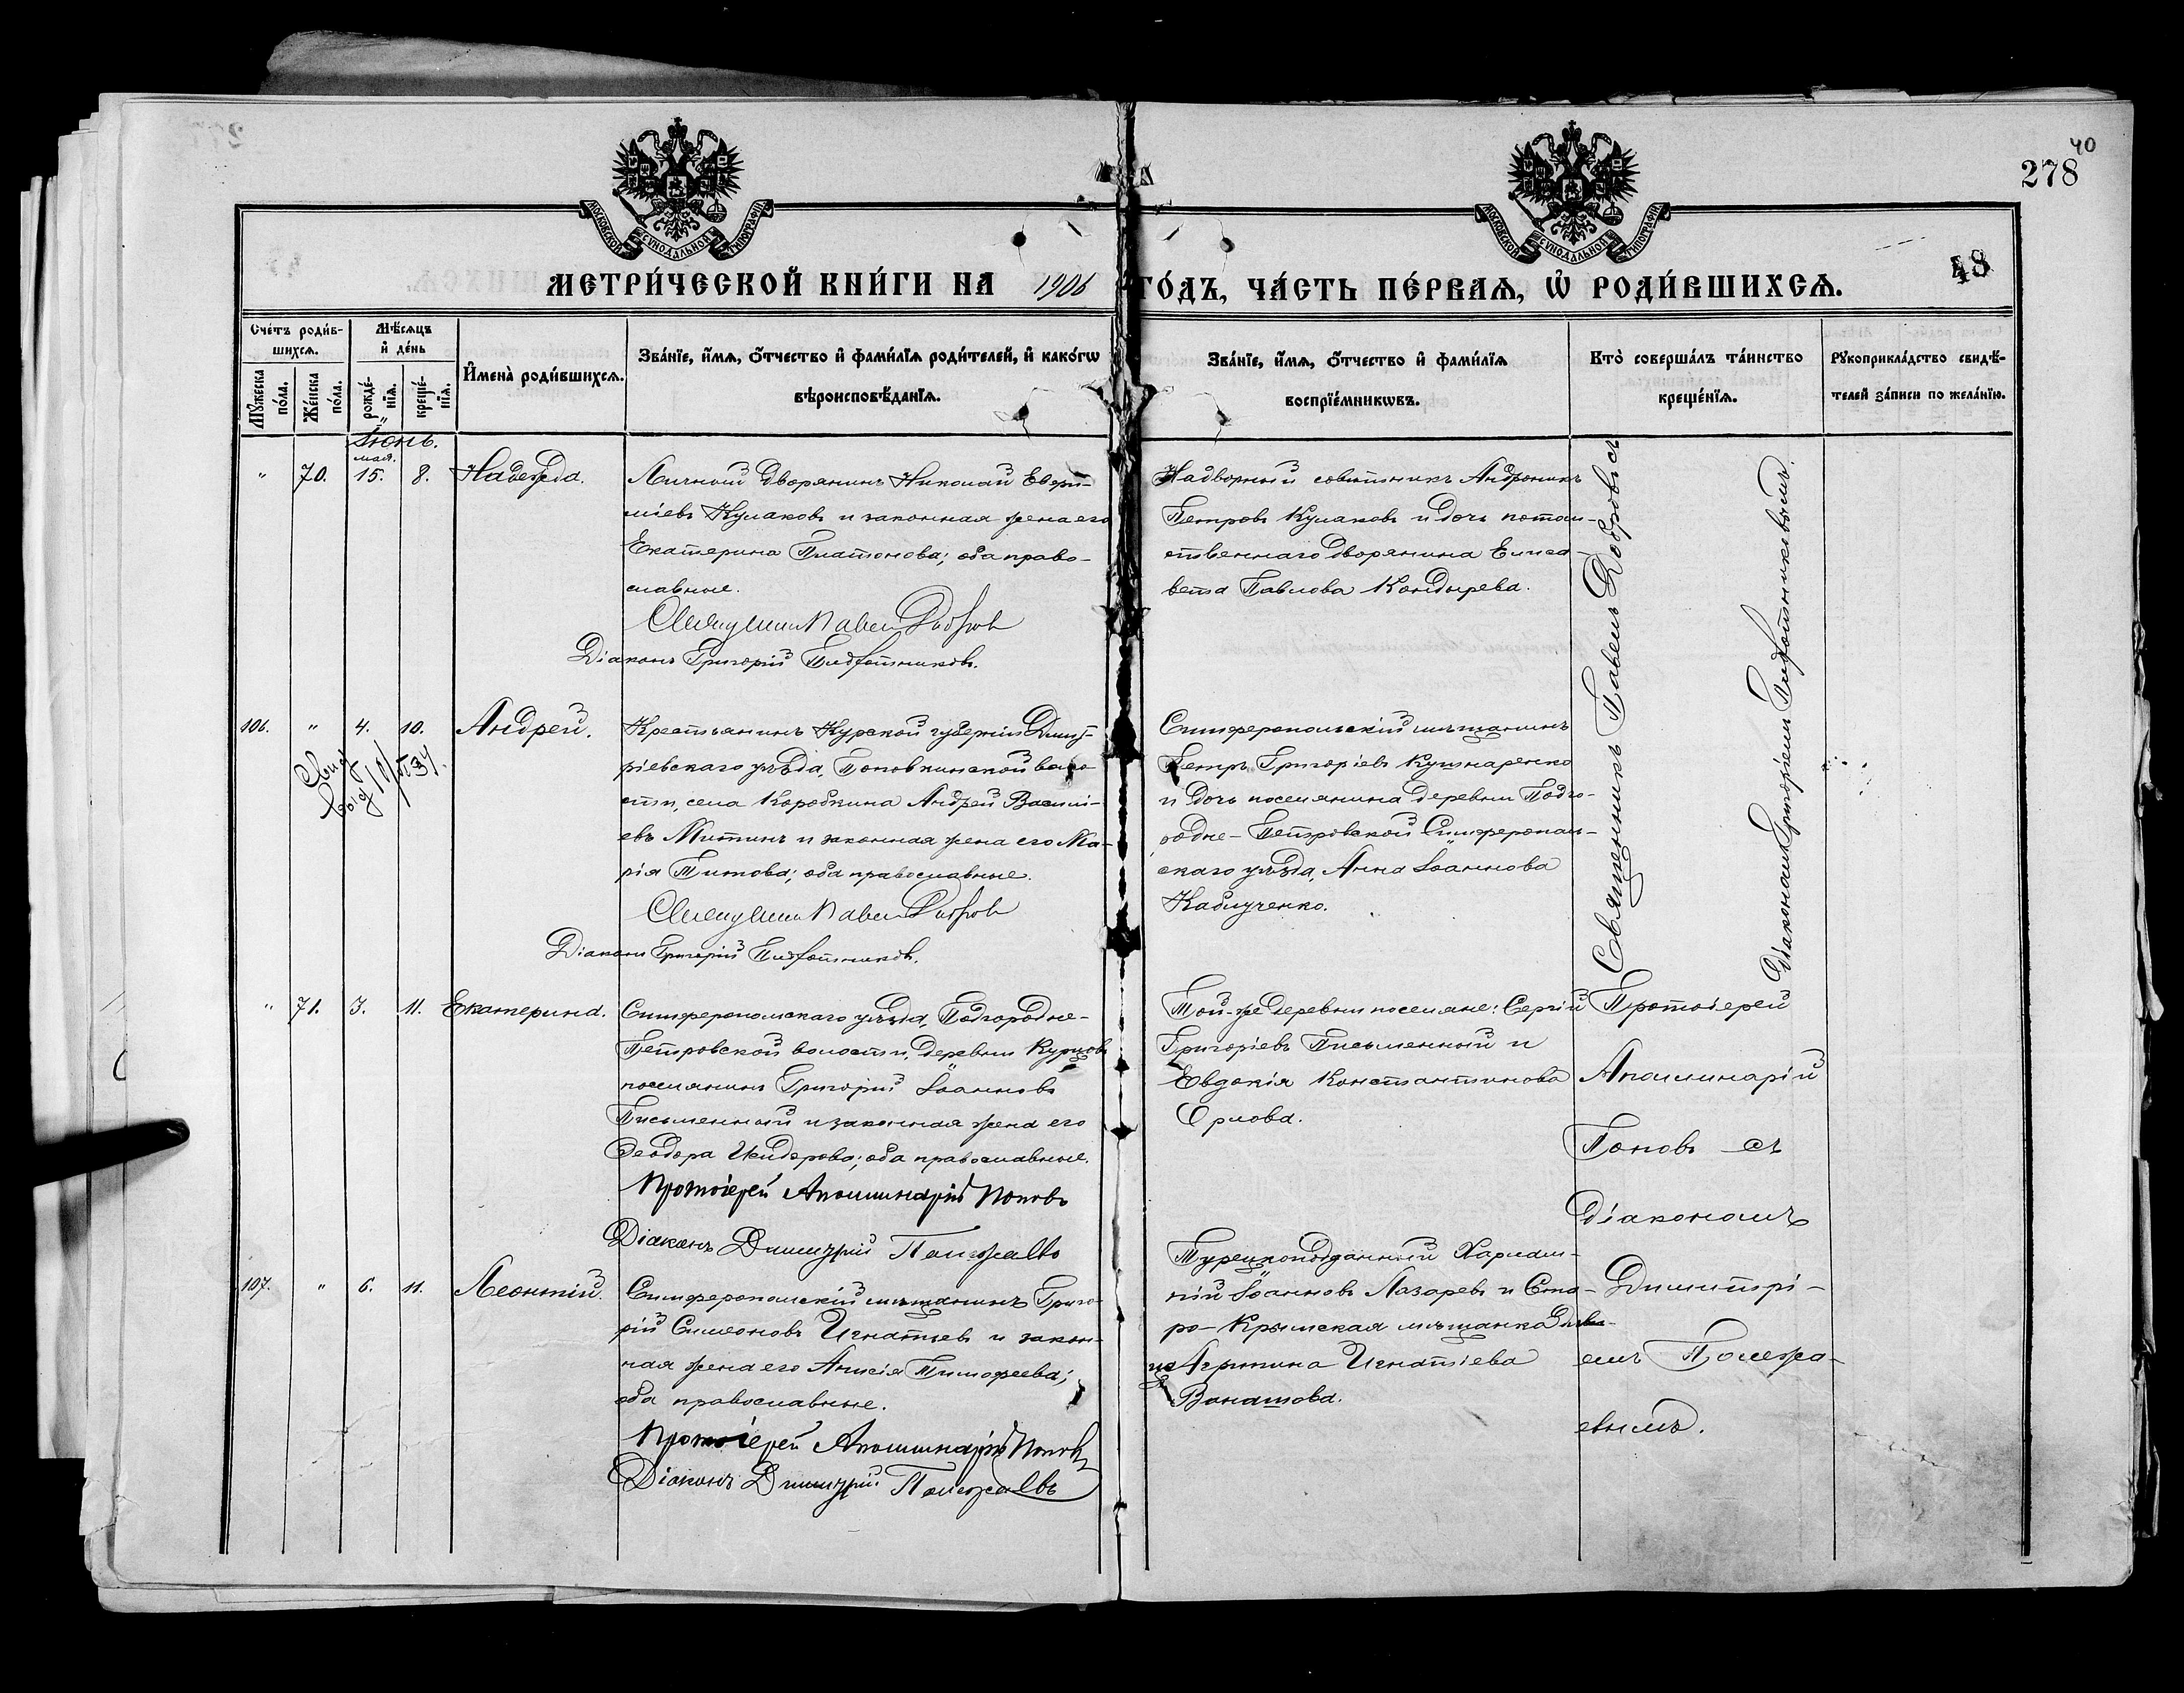 40
278
48
МОСКОВСКОЙ СУНОДАЛЬНОЙ ТИПОГРАФІИ
МОСКОВСКОЙ СУНОДАЛЬНОЙ ТИПОГРАФІИ
МЕТРИ́ЧЕСКОЙ КНИ́ГИ НА 1906 ГО́ДЪ, ЧА́СТЬ ПЕ́РВАѦ, Ѡ҆ РОДИ́ВШИХСѦ.
Сче́тъ роди́в-
шихсѧ.
Мꙋ́жеска по́ла.
Же́нска по́ла.
Мѣ́сѧцъ
и҆ де́нь
рожде́-
нїѧ.
креще́-
нїѧ.
И҆мена̀ роди́вшихсѧ.
Зва́нїе, и҆́мѧ, ѻ҆́тчество и҆ фами́лїѧ роди́телей, и҆ како́гѡ
вѣроисповѣ́данїѧ.
Зва́нїе, и҆́мѧ, ѻ҆́тчество и҆ фами́лїѧ
воспрїе́мникѡвъ.
Кто̀ соверша́лъ та́инство
креще́нїѧ.
Рꙋкоприкла́дство свидѣ́-
телей за́писи по жела́нїю.
Іюнь.
мая.
" 70. 15. 8. Надежда.
Личный дворянинъ Николай Евѳи-
міевъ Кулаковъ и законная жена его
Екатерина Платонова; оба право-
славные.
Священникъ Павелъ Добровъ
Діаконъ Григорій
Надворный совѣтникъ Андроникъ
Петровъ Кулаковъ и дочь потом-
ственнаго дворянина Елиса-
вета Павлова Кондырева.
Священникъ Павелъ Добровъ съ
діакономъ Григоріемъ
106. " 4. 10. Андрей.
Свид
выд
Крестьянинъ Курской губерніи Дмит-
ріевскаго уѣзда, Поповкинской воло-
сти, села Коробкина Андрей Василі-
евъ Митинъ и законная жена его Ма-
рія Титова; оба православные.
Священникъ Павелъ Добровъ
Діаконъ Григорій
Симферопольскій мѣщанинъ
Петръ Григоріевъ Кушнаренко
и дочь поселянина деревни Подго-
родне-Петровской Симферополь-
скаго уѣзда, Анна Іоаннова
Каблученко.
" 71. 3. 11. Екатерина.
Симферопольскаго уѣзда, Подгородне-
Петровской волости, деревни Курцовъ
поселянинъ Григорій Іоанновъ
Письменный и законная жена его
Ѳеодора Исидорова; оба православные.
Протоіерей Аполлинарій Поповъ
Діаконъ Димитрій Полежаевъ
Той-же деревни поселяне: Сергій
Григоріевъ Письменный и
Евдокія Константинова
Орлова.
Протоіерей
Аполлинарій
Поповъ съ
діакономъ
Димитрі-
емъ Полежа-
евымъ.
107. " 6. 11. Леонтій.
Симферопольскій мѣщанинъ Григо-
рій Симеоновъ Игнатьевъ и закон-
ная жена его Анисія Тимофеева;
оба православные.
Протоіерей Аполлинарій Поповъ
Діаконъ Димитрій Полежаевъ
Турецкоподданный Харлам-
пій Іоанновъ Лазаревъ и Ста-
ро-Крымская мѣщанка
Игнатіева
Ванатова.